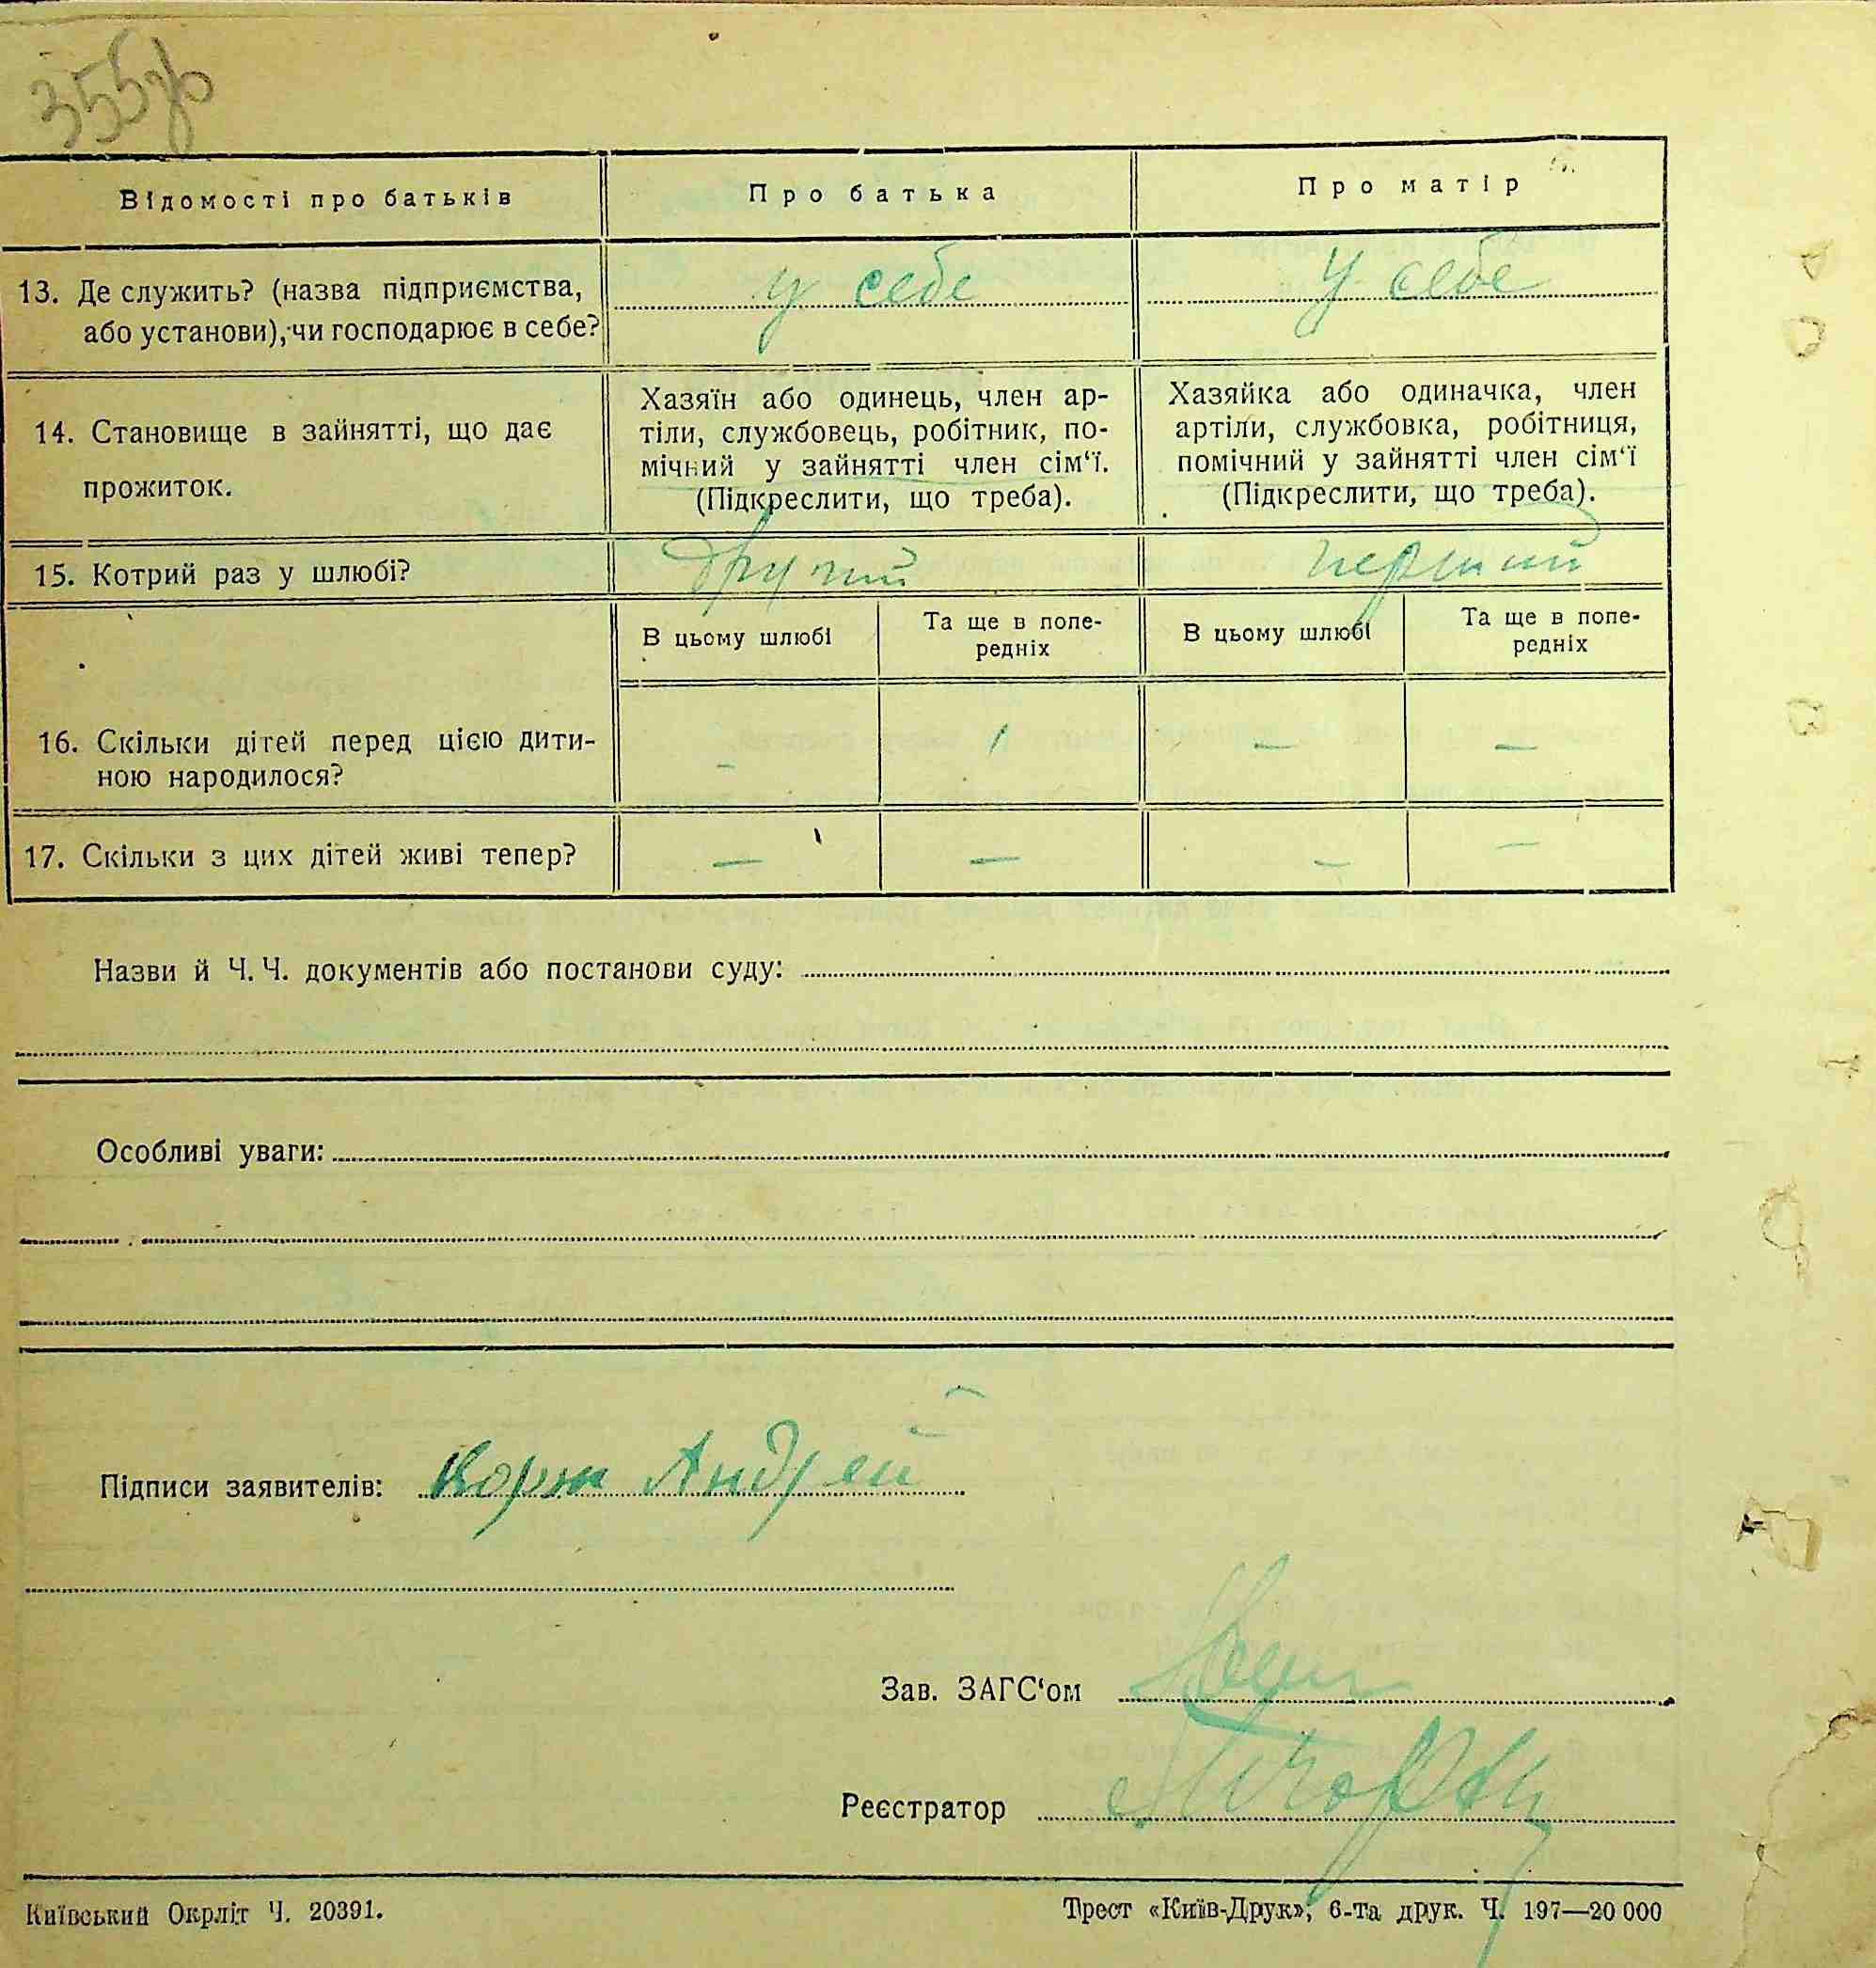 355зв
Відомості про батьків
Про батька
Про матір
13. Де служить? (назва підприємства,
або установи), чи господарює в себе?
у себе
у себе
14. Становище в зайнятті, що дає
прожиток.
Хазяїн або одинець, член ар-
тіли, службовець, робітник, по-
мічний у зайнятті член сім‘ї.
(Підкреслити, що треба).
Хазяйка або одиначка, член
артіли, службовка, робітниця,
помічний у зайнятті член сім‘ї
(Підкреслити, що треба).
15. Котрий раз у шлюбі?
другий
перший
В цьому шлюбі
Та ще в попе-
редніх
В цьому шлюбі
Та ще в попе-
редніх
16. Скільки дітей перед цією дити-
ною народилося?
– 1 – –
17. Скільки з цих дітей живі тепер?
– – – –
Назви й Ч. Ч. документів або постанови суду:
Особливі уваги:
Підписи заявителів: Корж Андрей
Зав. ЗАГС‘ом
Реєстратор
Київський Окрліт Ч. 20391.
Трест «Київ-Друк», 6-та друк. Ч. 197—20 000